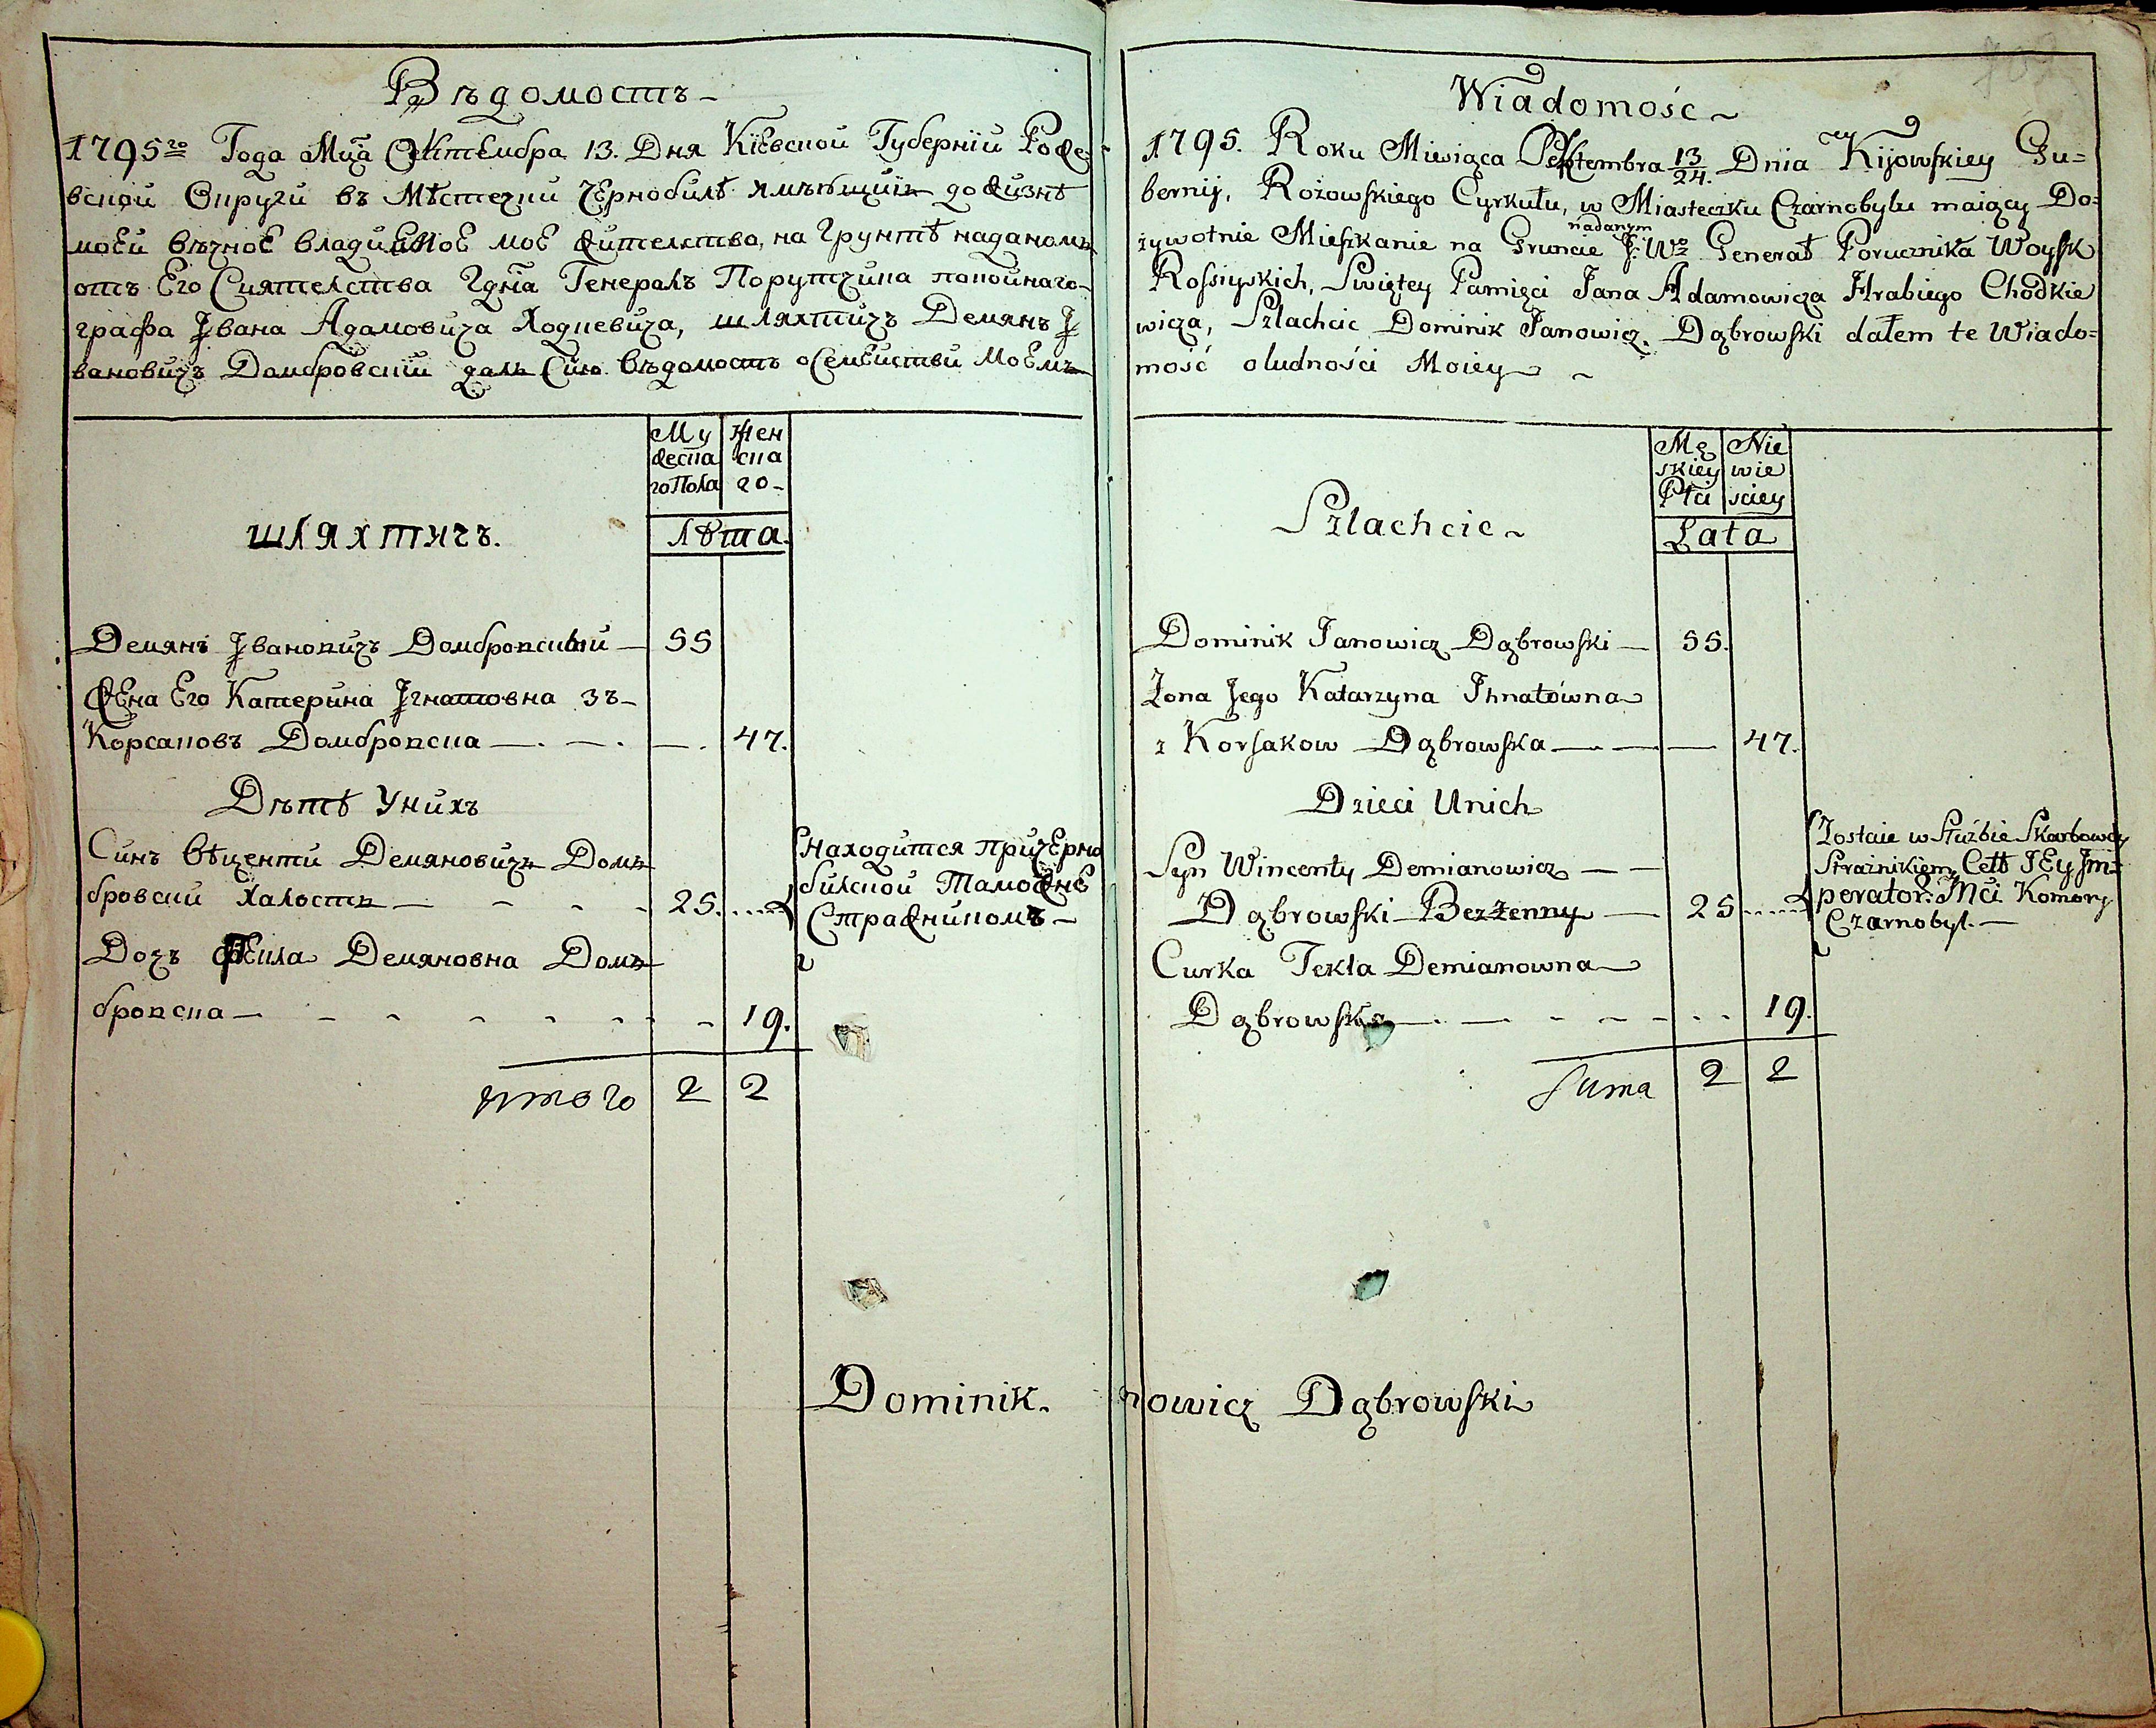 Вѣдомость
1795го Года Мца Септембра 13. Дня Кіевской Губерніи Роже-
вской Округи въ Мѣстечки Чернобилѣ имѣющій до жизнѣ
моей вѣчноЕ владѣемоЕ моЕ жителство, на Грунтѣ наданомъ
отъ Его Сиятелства Гдна Генералъ Порутчика покойнаго
графа Івана Адамовича Ходкевича, шляхтичъ Демянъ І
вановичъ Домбровскій далъ Сию вѣдомость о Семействи Моемъ
Му
жеска
го Пола
Жен
ска
го
шляхтичъ.
Лѣта.
Демянъ Івановичъ Домбровскій — 55
Жена Его Катерина Ігнатовна зъ
Корсаковъ Домбровска — 47.
Дѣтѣ Унихъ
Синъ Вѣценти Демяновичъ Дом
бровски Халостъ — 25.
Находится при Черно
билской Таможнѣ
Стражникомъ
Дочъ Текла Демяновна Домъ
бровска — 19.
итого 2 2
Wiadomośc
709
1795. Roku Miesiąca Septembra 13/24. Dnia Kijowskiey Gu=
bernij, Rożowskiego Cyrkułu, w Miasteczku Czarnobylu maiący Do=
żywotnie Mieszkanie na Gruncie nadanym J: Wo Generał Porucznika Woysk
Rossiyskich, Swiętey Pamięci Jana Adamowicza Hrabiego Chodkie
wicza, Szlachcic Dominik Janowicz. Dąbrowski dałem te Wiado=
mość o ludności Moiey
Mę
skiey
Płci
Nie
wie
sciey
Szlachcic
Lata
Dominik Janowicz Dąbrowski — 55.
Żona Jego Katarzyna Ihnatówna
z Korsakow Dąbrowska — 47.
Dzieci Unich
Syn Wincenty Demianowicz
Dąbrowski Bezżenny — 25
Zostaie w Służbie Skarbowey
Strażnikiem Cełł JEy Im=
perator: Mći Komory
Czarnobyl.
Curka Tekla Demianowna
Dąbrowska — 19.
Suma 2 2
Dominik. nowicz Dąbrowski